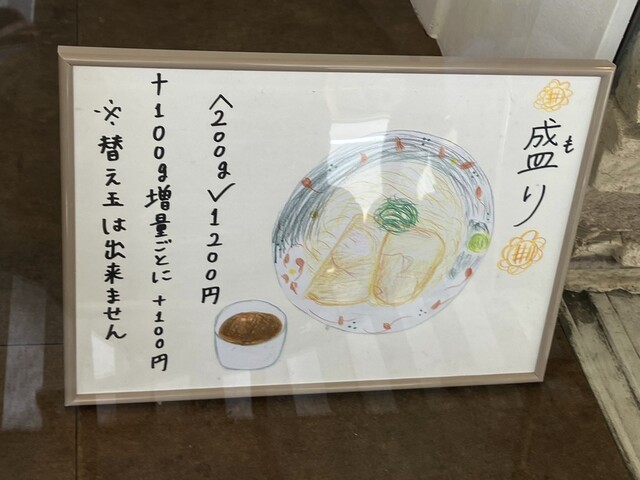 盛り
も
〈200g〉1200円
+100g増量ごとに+100円
※替え玉は出来ません